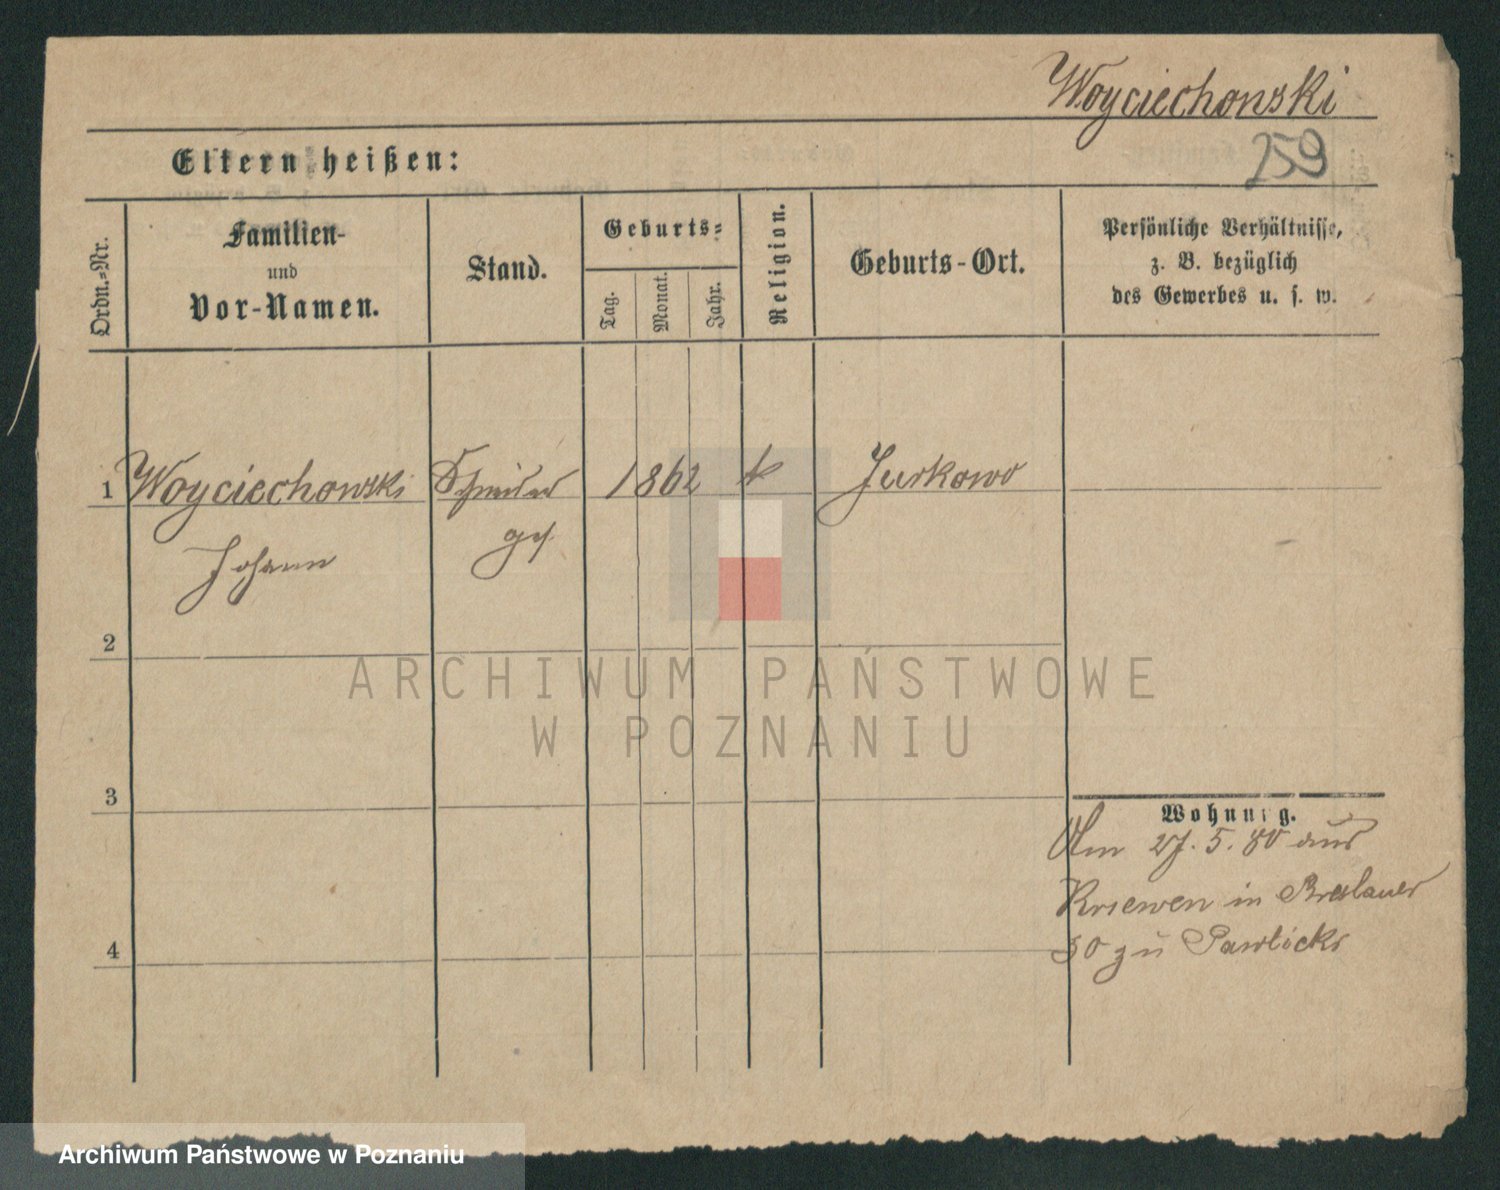 Woyciechowski
259
Eltern heißen:
Ordn.-Nr.
Familien-
und
Vor-Namen.
Stand.
Geburts-
Tag.
Monat.
Jahr.
Religion.
Geburts-Ort.
Persönliche Verhältnisse,
z. B. bezüglich
des Gewerbes u. s. w.
1 Woyciechowski Schneider 1862 k Jurkowo
Johann ges.
2
3
4
Wohnung.
Am 27. 5. 80 aus
Kriewen in Breslauer
30 zu Pawlicki
ARCHIWUM PAŃSTWOWE
W POZNANIU
Archiwum Państwowe w Poznaniu